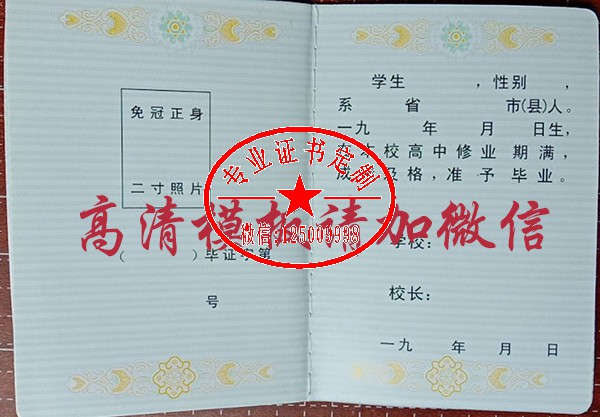 免冠正身
二寸照片
( )毕证字第
号
学生 ，性别 ，
系 省 市(县)人。
一九 年 月 日生，
在本校高中修业 期满，
成 及格，准予 毕业。
学校：
校长：
一九 年 月 日
专业证书定制
高清模板请加微信